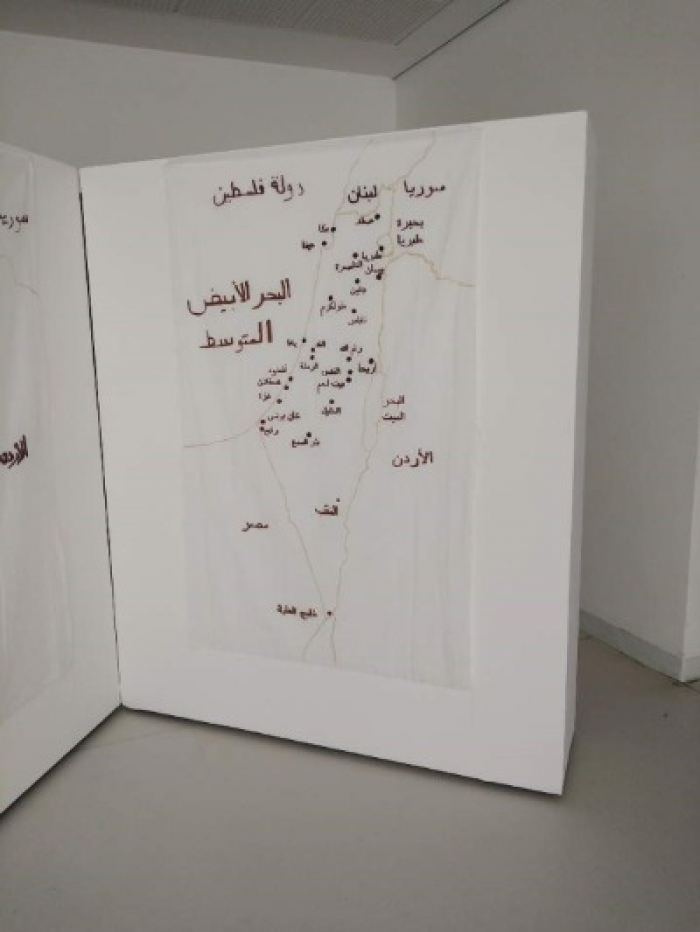 دولة فلسطين
لبنان
سوريا
صفد
عكا
حيفا
بحيرة
طبريا
طبريا
الناصرة
بيسان
جنين
طولكرم
نابلس
البحر الأبيض
المتوسط
يافا
اللد
الرملة
رام الله
القدس
أريحا
بيت لحم
غزة
الخليل
البحر
الميت
خان يونس
رفح
بئر السبع
الأردن
النقب
مصر
خليج العقبة
الأردن